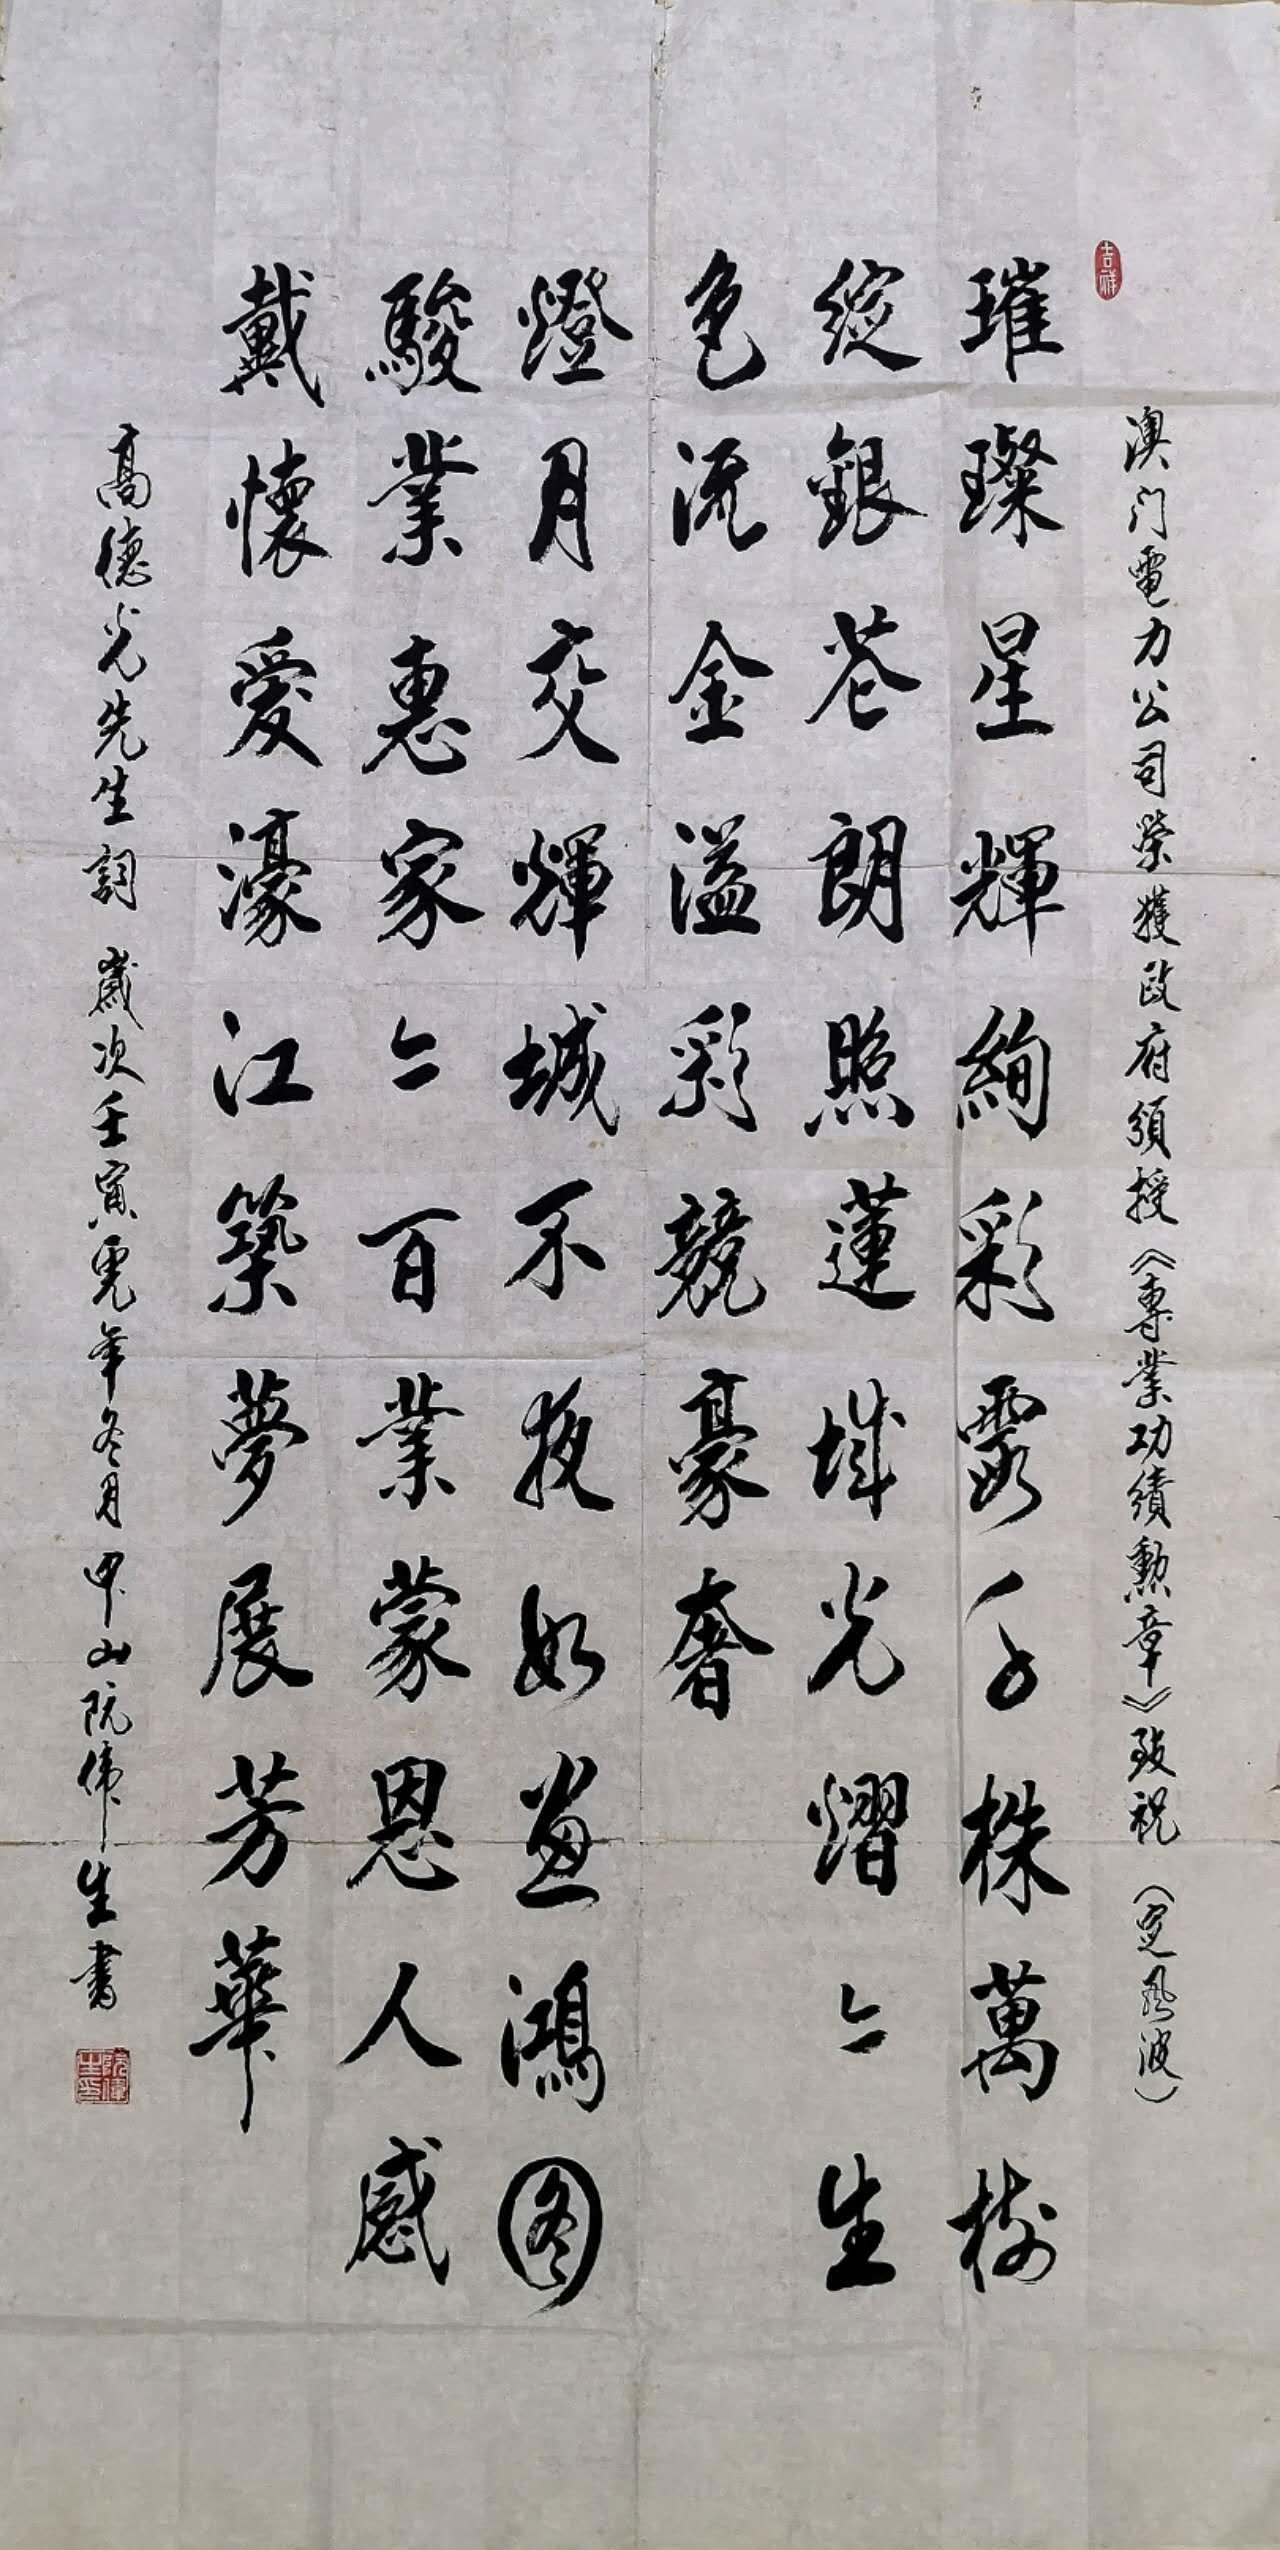 吉祥
澳门電力公司榮獲政府頒授《專業功績勲章》致祝（定風波）
璀璨星輝絢彩霞千株萬樹
綻銀花朗照蓮城光熠々生
色流金溢彩競豪奢
燈月交輝城不夜如畫鴻图
駿業惠家々百業蒙恩人感
戴懷愛濠江築夢展芳華
高德光先生詞 歲次壬寅虎年冬月 甲山阮偉生書
阮偉生印